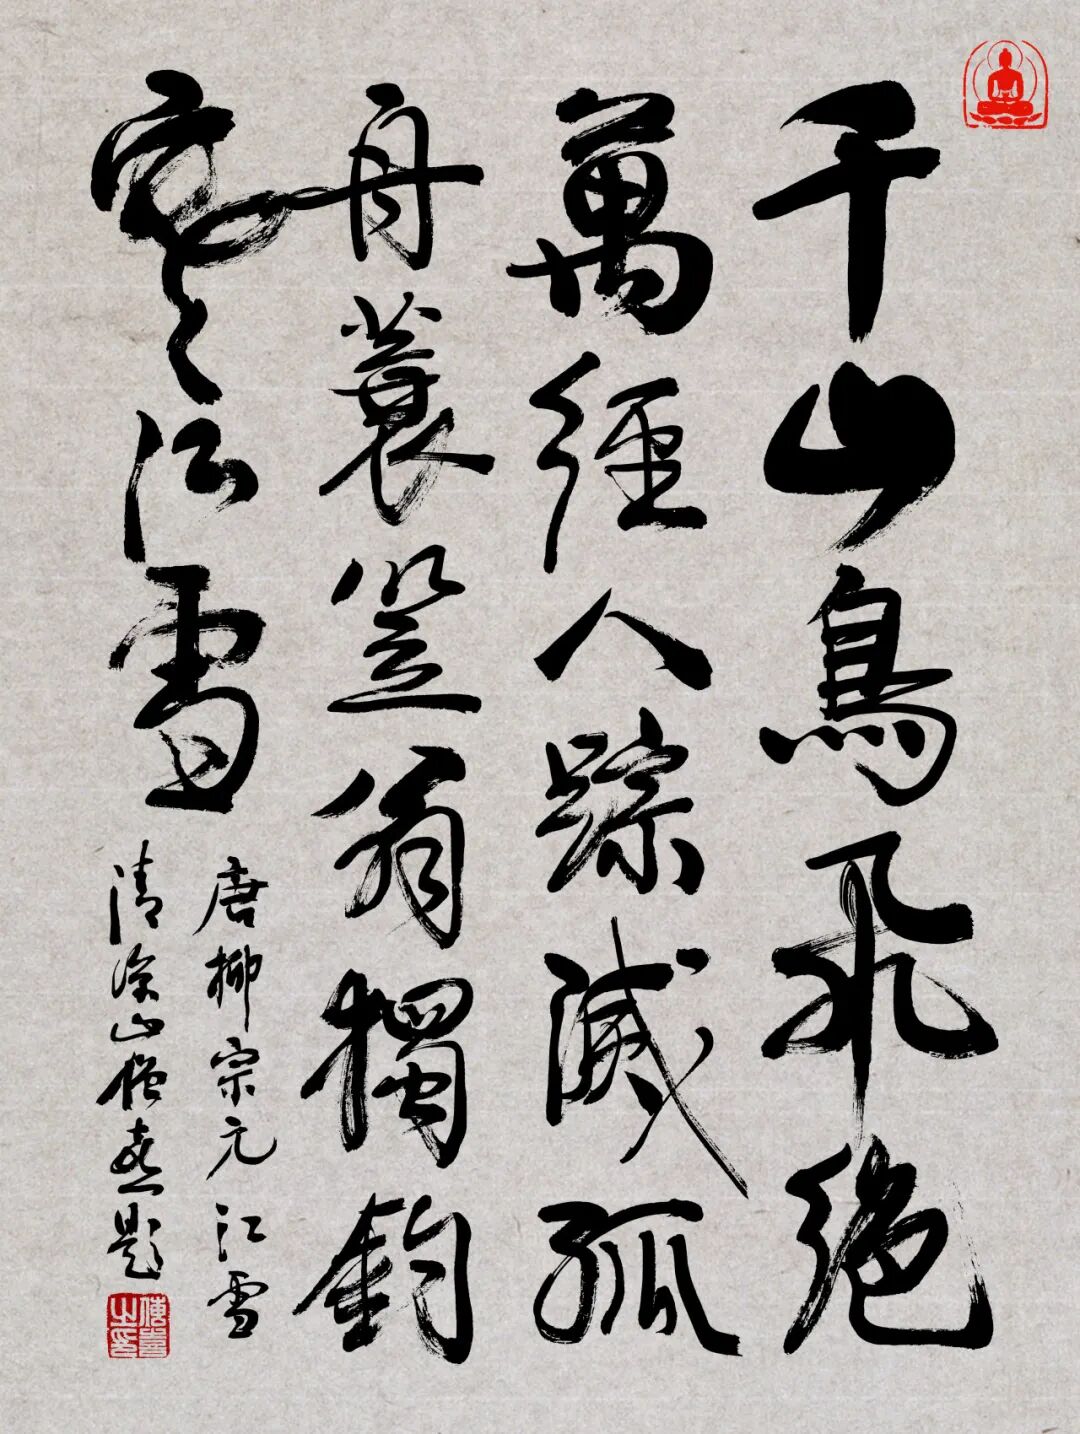 千山鳥飛絕
萬徑人踪滅孤
舟蓑笠翁獨釣
寒江雪
唐柳宗元江雪
清涼山喜題
傳喜之印